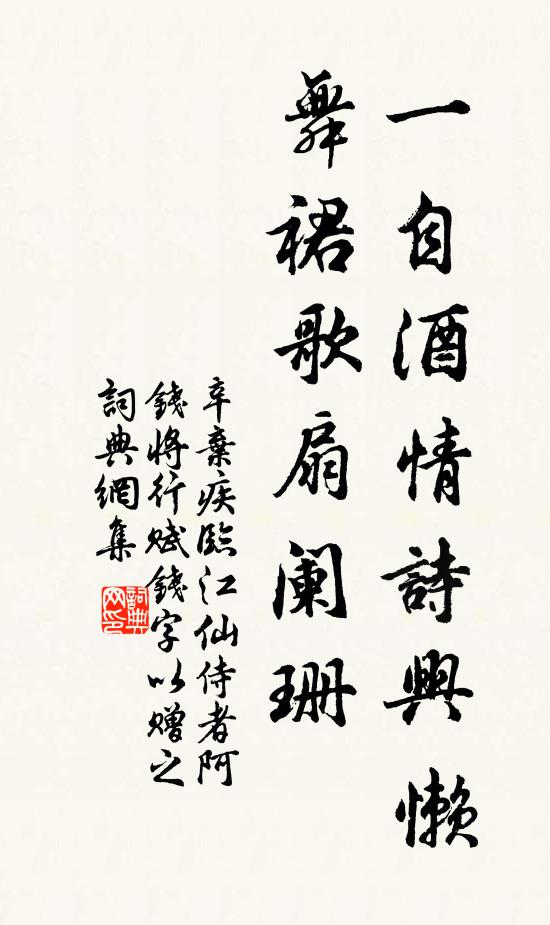 一自酒情詩興懶
舞裙歌扇阑珊
辛棄疾臨江仙侍者阿
錢將行赋錢字以赠之
詞典網集
詞典网印